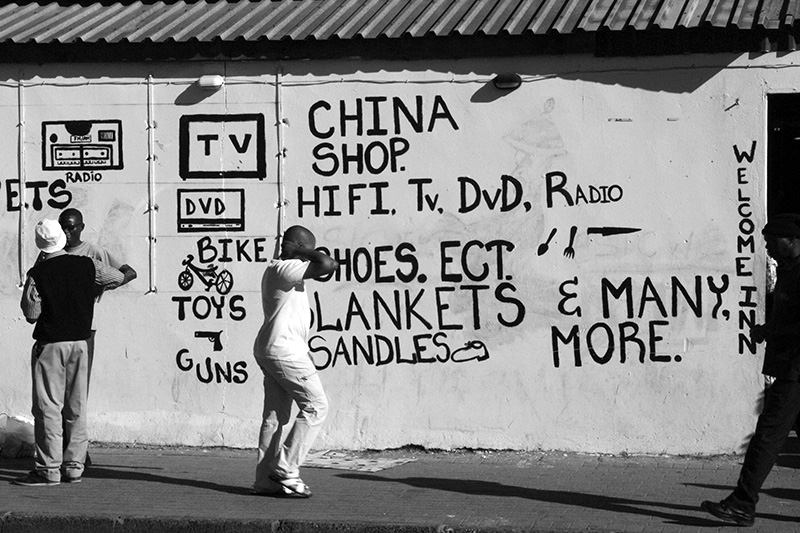 RADIO
ETS
TV
DVD
BIKE
TOYS
GUNS
CHINA
SHOP.
HIFI. TV, DVD, RADIO
SHOES. ECT.
BLANKETS & MANY,
SANDLES MORE.
WELCOME INN